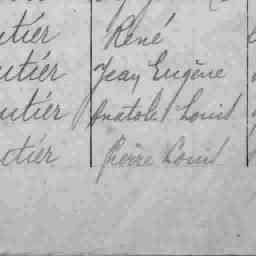 utiér René
utiér Jean Eugène
utiér Anatole Louis
utiér Pierre Louis